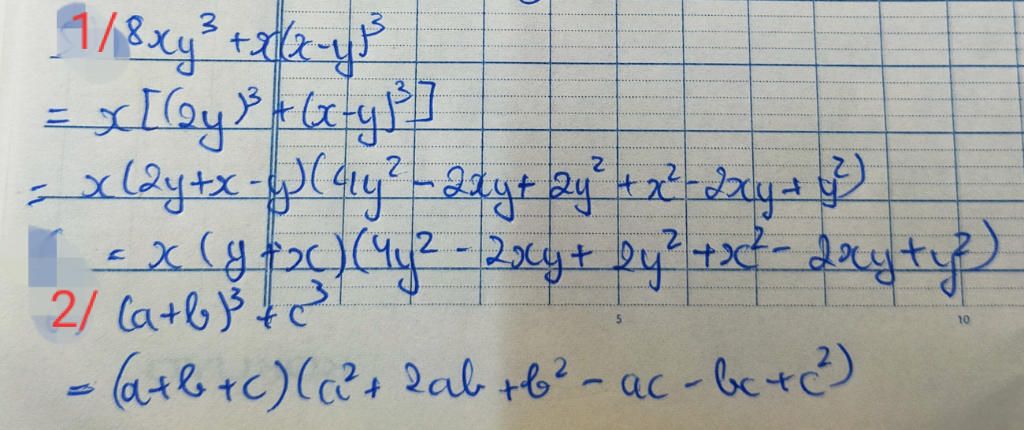 1/ 8xy³ + x(x-y)³
= x[(2y)³ + (x-y)³]
= x(2y+x-y)(4y² - 2xy + 2y² + x² - 2xy + y²)
= x(y+x)(4y² - 2xy + 2y² + x² - 2xy + y²)
2/ (a+b)³ + c³
5 10
= (a+b+c)(a² + 2ab + b² - ac - bc + c²)